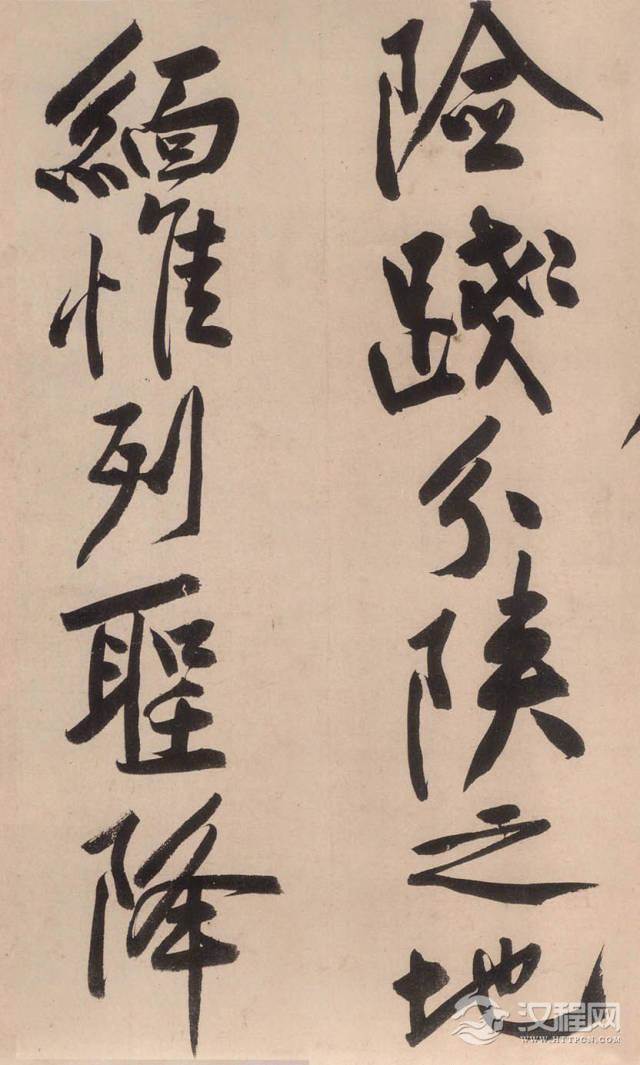 險踐分陝之地
緬惟列聖降
汉程网
WWW.HTTPCN.COM